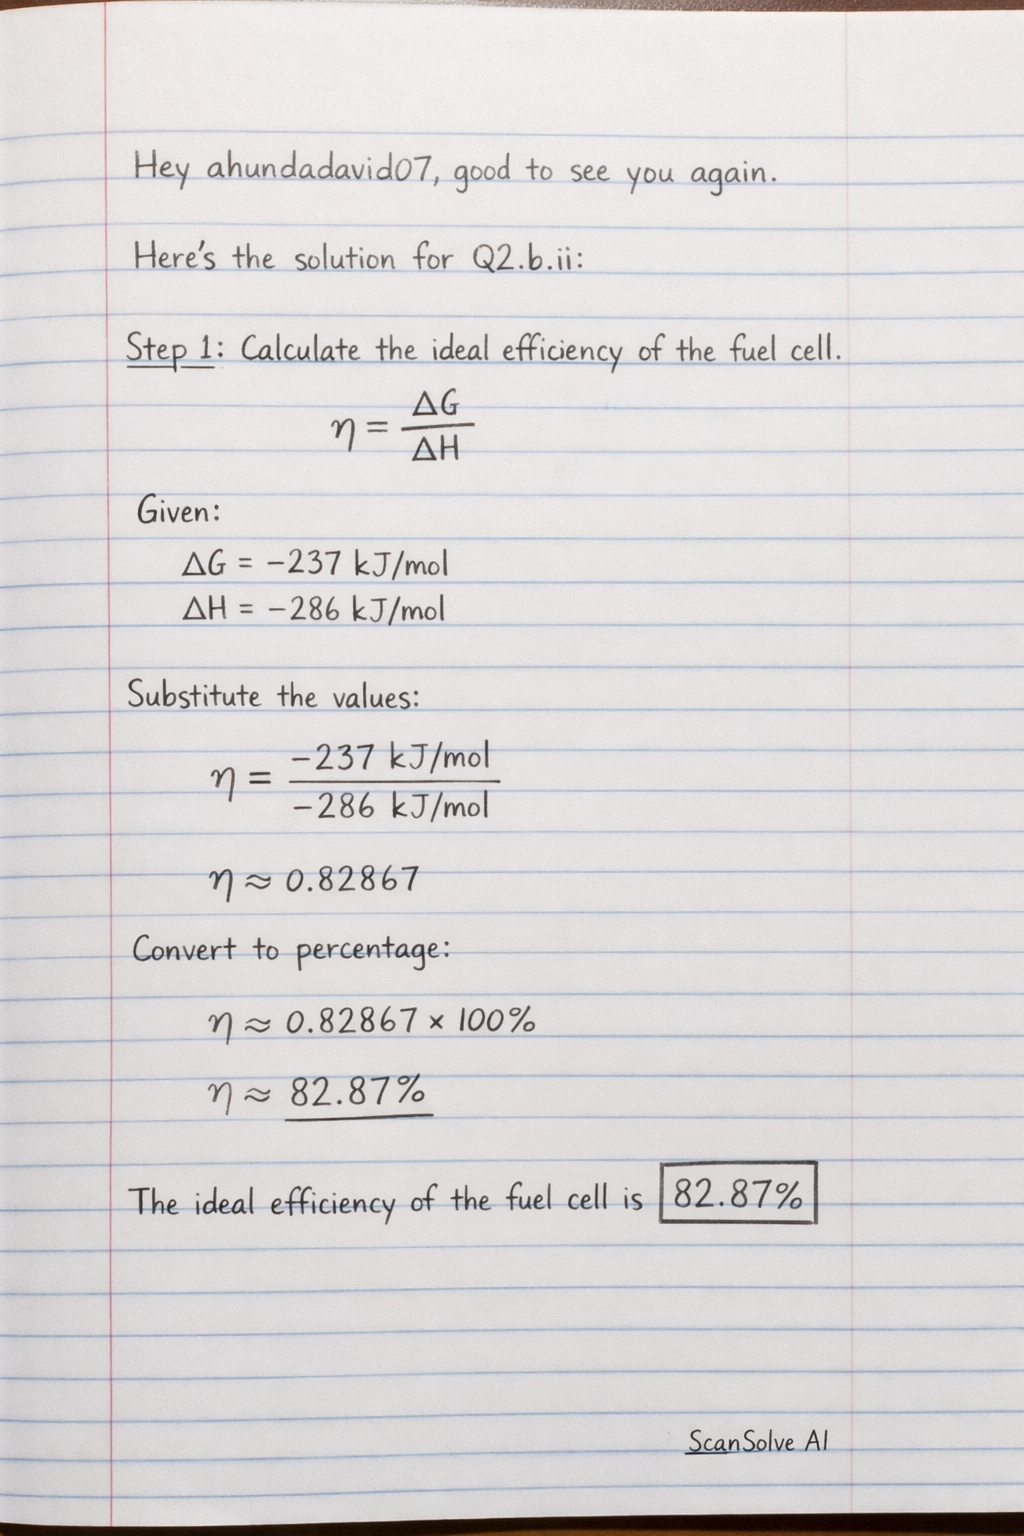 Hey ahundadavid07, good to see you again.
Here's the solution for Q2.b.ii:
Step 1: Calculate the ideal efficiency of the fuel cell.
η = ΔG / ΔH
Given:
ΔG = −237 kJ/mol
ΔH = −286 kJ/mol
Substitute the values:
η = −237 kJ/mol / −286 kJ/mol
η ≈ 0.82867
Convert to percentage:
η ≈ 0.82867 × 100%
η ≈ 82.87%
The ideal efficiency of the fuel cell is 82.87%
ScanSolve AI